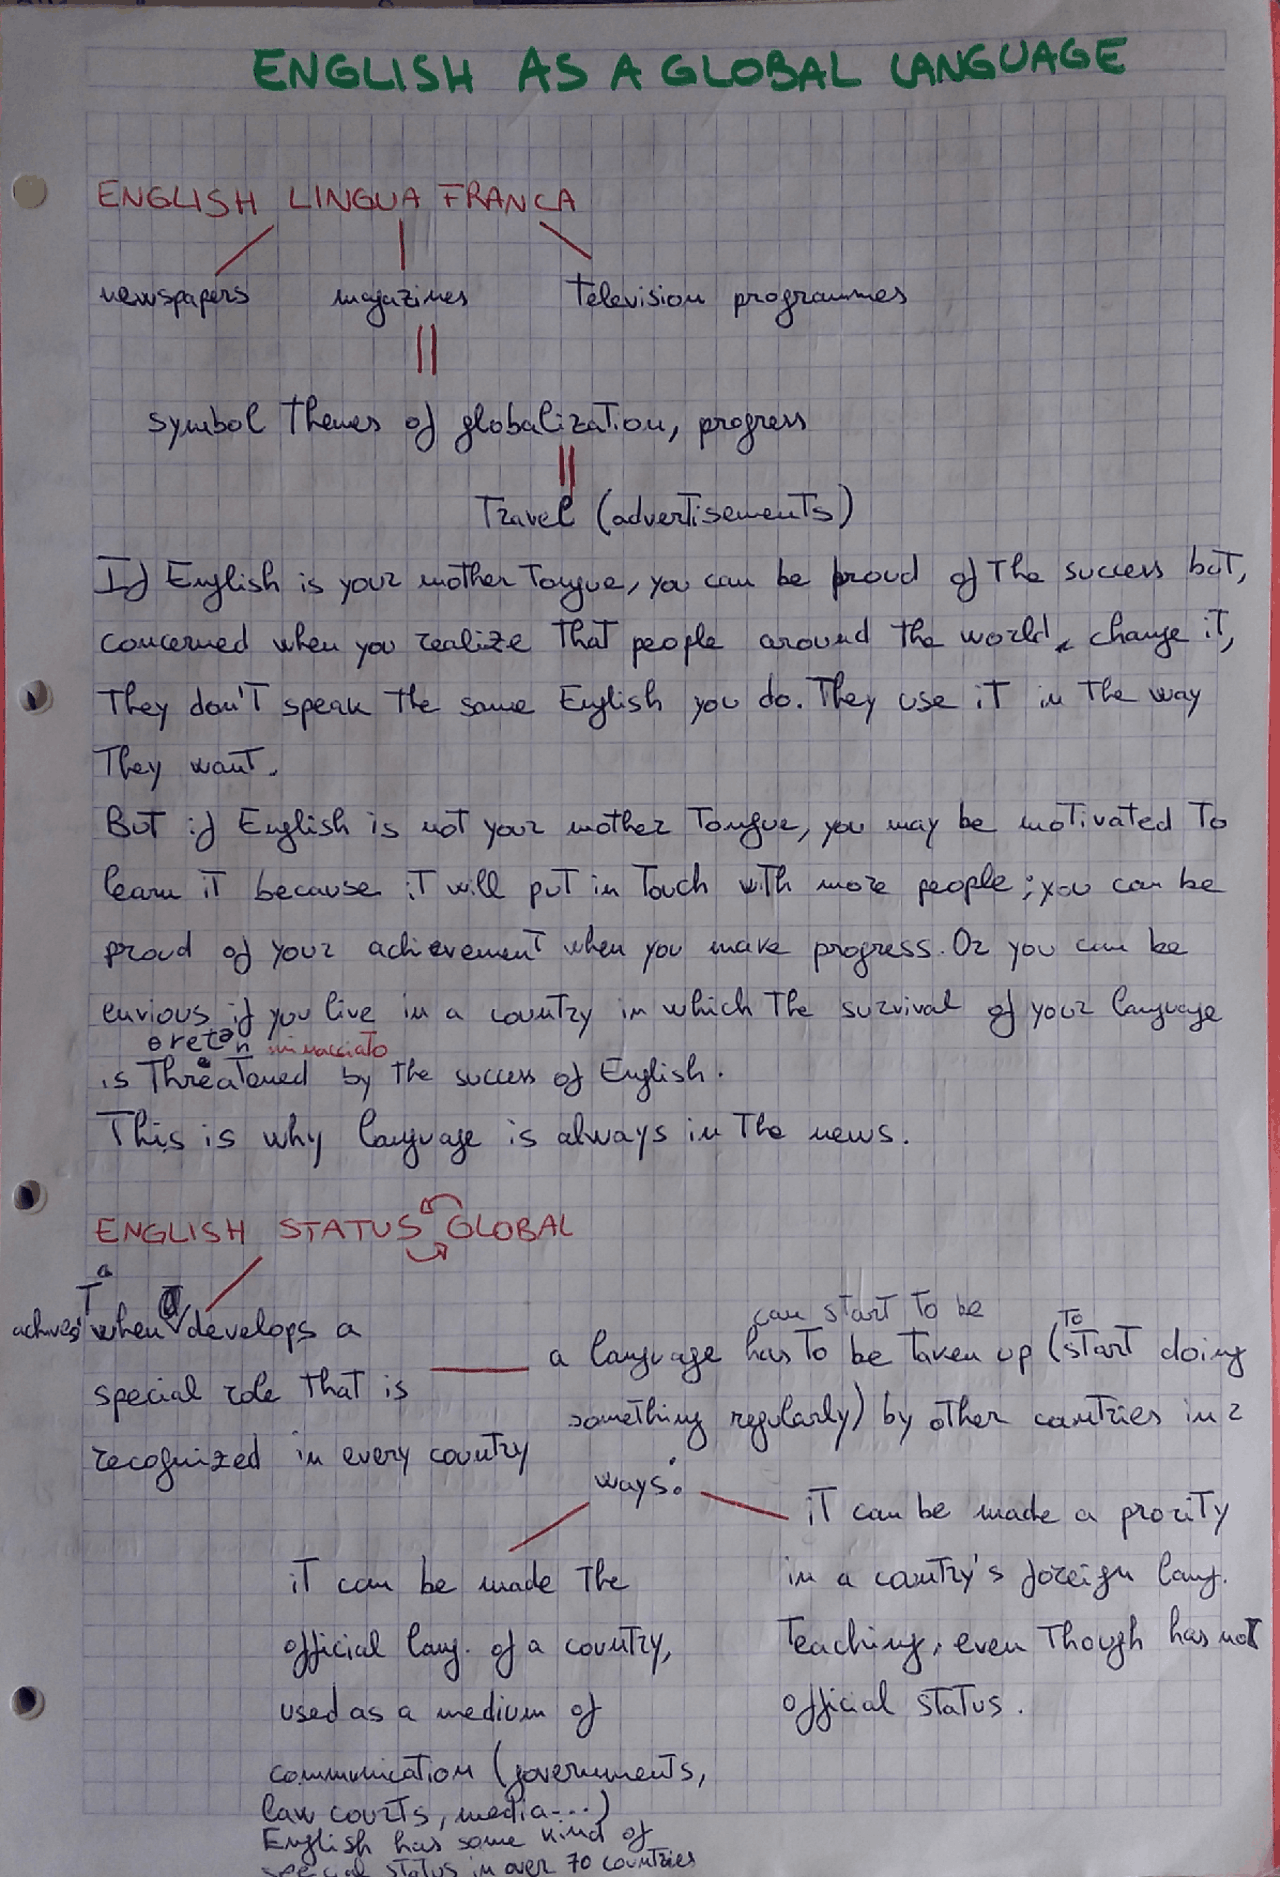 ENGLISH AS A GLOBAL LANGUAGE
ENGLISH LINGUA FRANCA
newspapers magazines television programmes
symbol themes of globalization, progress
Travel (advertisements)
If English is your mother tongue, you can be proud of the success but,
concerned when you realize that people around the world change it,
they don't speak the same English you do. They use it in the way
they want.
But if English is not your mother tongue, you may be motivated to
learn it because it will put in touch with more people; you can be
proud of your achievement when you make progress. Or you can be
envious if you live in a country in which the survival of your language
minacciato
is threatened by the success of English.
This is why language is always in the news.
ENGLISH STATUS GLOBAL
when develops a
special role that is
recognized in every country
can start to be
a language has to be taken up (to start doing
something regularly) by other countries in 2
ways:
it can be made the
official lang. of a country,
used as a medium of
communication (governments,
law courts, media---)
English has some kind of
special status in over 70 countries
it can be made a prority
in a country's foreign lang.
teaching, even though has not
official status.